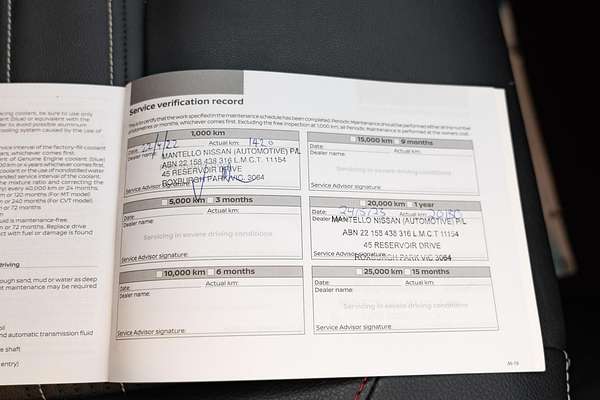 acing coolant, be sure to use only
(blue) or equivalent with the
der to avoid possible aluminum
cooling system caused by the use of
service interval of the factory-fill coolant
ears, whichever comes first.
of Genuine Engine coolant (blue)
coolant or the use of nondistilled water
ended service interval of the coolant.
the mixture ratio and correcting the
km or 120 months (For MT model).
km or 240 months (For CVT model).
luid is maintenance-free.
km or 72 months. Replace drive
ct with fluid or damage is found
driving
ough sand, mud or water as deep
nt maintenance may be required
oil
and automatic transmission fluid
e shaft
entry)
Service verification record
This is to certify that the work specified in the maintenance schedule has been completed. Periodic Maintenance should be performed either at number
of kilometres or months, whichever comes first. Excluding the free inspection at 1,000 km, all Periodic Maintenance is performed at the owner's cost.
1,000 km
Date: Actual km: 1420
Dealer name:
MANTELLO NISSAN (AUTOMOTIVE) P/L
ABN 22 158 438 316 L.M.C.T. 11154
45 RESERVOIR DRIVE
ROXBURGH PARK VIC 3064
Service Advisor signature:
5,000 km 3 months
Date: Actual km:
Dealer name:
Servicing in severe driving conditions
Service Advisor signature:
10,000 km 6 months
Date: Actual km:
Dealer name:
Service Advisor signature:
15,000 km 9 months
Date: Actual km:
Dealer name:
Servicing in severe driving conditions
Service Advisor signature:
20,000 km 1 year
Date: Actual km:
Dealer name:
MANTELLO NISSAN (AUTOMOTIVE) P/L
ABN 22 158 438 316 L.M.C.T. 11154
45 RESERVOIR DRIVE
ROXBURGH PARK VIC 3064
25,000 km 15 months
Date: Actual km:
Dealer name:
Servicing in severe driving conditions
Service Advisor signature: